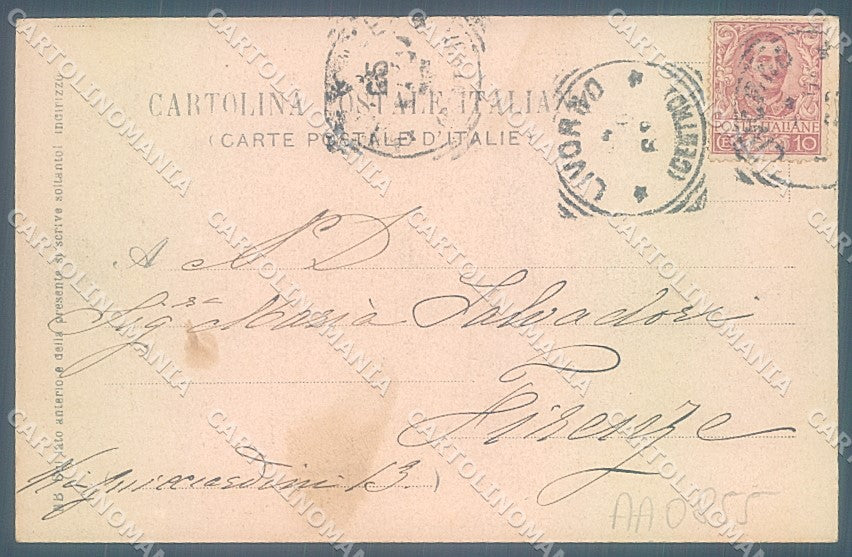 CARTOLINA POSTALE ITALIANA
(CARTE POSTALE D'ITALIE)
LIVORNO
(CENTRO)
POSTE ITALIANE
10
A N D
Sig.ra Maria Salvadori
Firenze
Via Guicciardini 13.)
NB Sul lato anteriore della presente si scrive soltanto l'indirizzo
AA0855
CARTOLINOMANIA